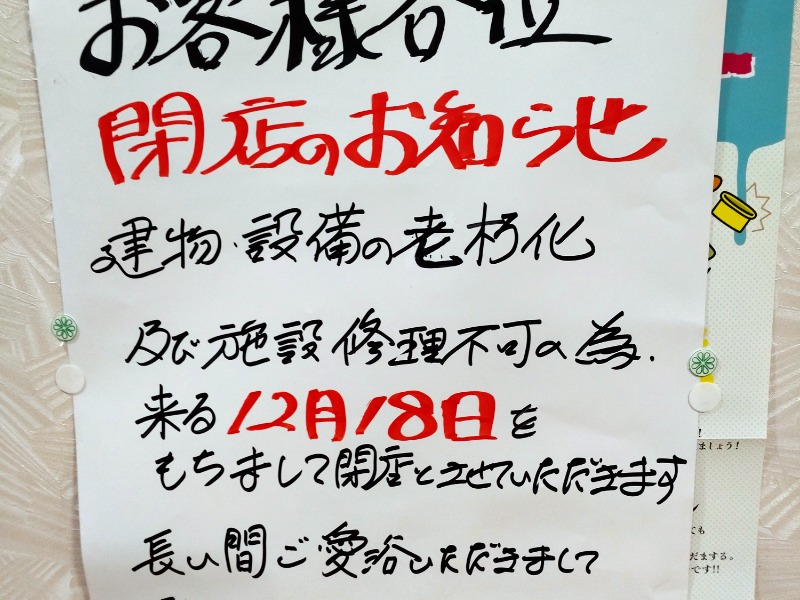 お客様各位
閉店のお知らせ
建物・設備の老朽化
及び施設修理不可の為、
来る12月18日を
もちまして閉店とさせていただきます
長い間ご愛浴いただきまして
ましょう!
ても
だまする。
です!!